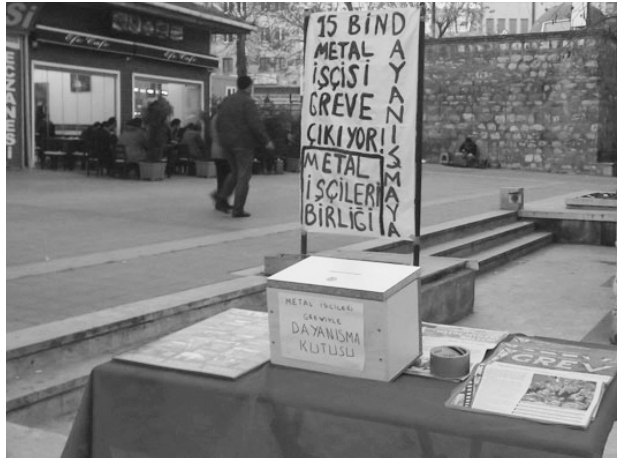 ECZANESİ
Efe Cafe
Efe Cafe
15 BİN
METAL
İŞÇİSİ
GREVE
ÇIKIYOR!
METAL
İŞÇİLERİ
BİRLİĞİ
DAYANIŞMAYA
METAL İŞÇİLERİ
GREVİYLE
DAYANIŞMA
KUTUSU
GREV